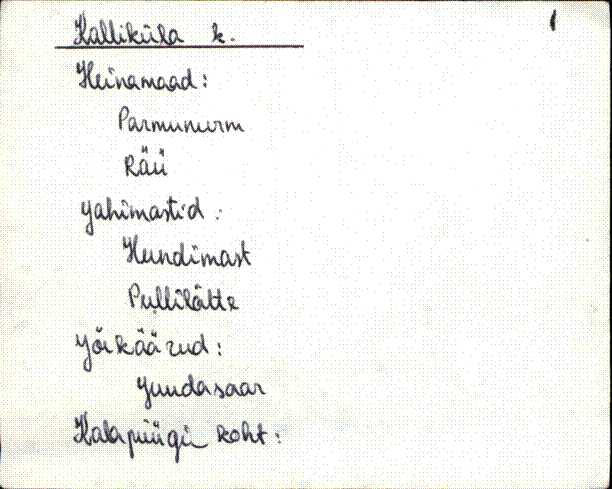 Kalliküla k.
1
Heinamaad:
Parmunurm
Räü
Jahimastid:
Hundimast
Pullilätte
Jõekäärud:
Juudasaar
Kalapüügi koht: